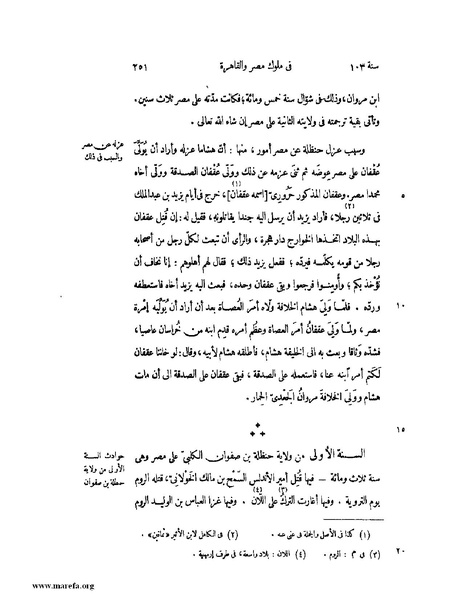 سنة ١٠٣ فى ملوك مصر والقاهرة ٢٥١
ابن مروان، وذلك فى شوّال سنة خمس ومائة؛ فكانت مدّته على مصر ثلاث سنين.
وتأتى بقية ترجمته فى ولايته الثانية على مصر إن شاء الله تعالى.
عزله عن مصر
والسبب فى ذلك
وسبب عزل حنظلة عن مصر أمور، منها: أنّ هشاما عزله وأراد أن يُوَلِّىَ
عُقْفان على مصر عِوضَه ثم ثنى عزمه عن ذلك وولّى عُقْفان الصدقة وولّى أخاه
٥
محمدا مصر. وعقفان المذكور حَرُورِىّ [اسمه عقفان] (١)، خرج فى أيام يزيد بن عبد الملك
فى ثلاثين (٢) رجلا، فأراد يزيد أن يرسل اليه جندا يقاتلونه، فقيل له: إن قُتِل عقفان
بهذه البلاد اتخذها الخوارج دار هجرة، والرأى أن تبعث لكلّ رجل من أصحابه
رجلا من قومه يكلّمه فيردّه؛ ففعل يزيد ذلك؛ فقال لهم أهلوهم: إنا نخاف أن
نُؤْخَذ بكم؛ وأُومِنوا فرجعوا وبقى عقفان وحده، فبعث اليه يزيد أخاه فاستعطفه
١٠
وردّه. فلمّا وَلِىَ هشام الخلافة ولّاه أمرَ العُصاة بعد أن أراد أن يُوَلِّيه إمْرة
مصر، ولمّا وَلِىَ عقفانُ أمرَ العصاة وعظُم أمره قدِم ابنه من خُراسان عاصيا،
فشدّه وَثاقا وبعث به الى الخليفة هشام، فأطلقه هشام لأبيه، وقال: لو خاننا عقفان
لَكَتم أمرَ ابنه عنا، فاستعمله على الصدقة، فبقى عقفان على الصدقة الى أن مات
هشام ووَلِىَ الخلافةَ مروانُ الجَعْدِىّ الحِمار.
١٥
حوادث السنة
الأولى من ولاية
حنظلة بن صفوان
السنة الأولى من ولاية حنظلة بن صفوان الكلبىّ على مصر وهى
سنة ثلاث ومائة — فيها قُتِل أمير الأندلس السَّمْح بن مالك الخَوْلانِىّ، قتله الروم
يوم التروية. وفيها أغارت التركُ (٣) على اللّان (٤). وفيها غزا العباس بن الوليد الروم
(١) كذا فى الأصل والجملة فى غنى عنه. (٢) فى الكامل لابن الأثير «ثمانين».
٢٠
(٣) فى م: الروم. (٤) اللان: بلاد واسعة، فى طرف إرمينية.
www.marefa.org